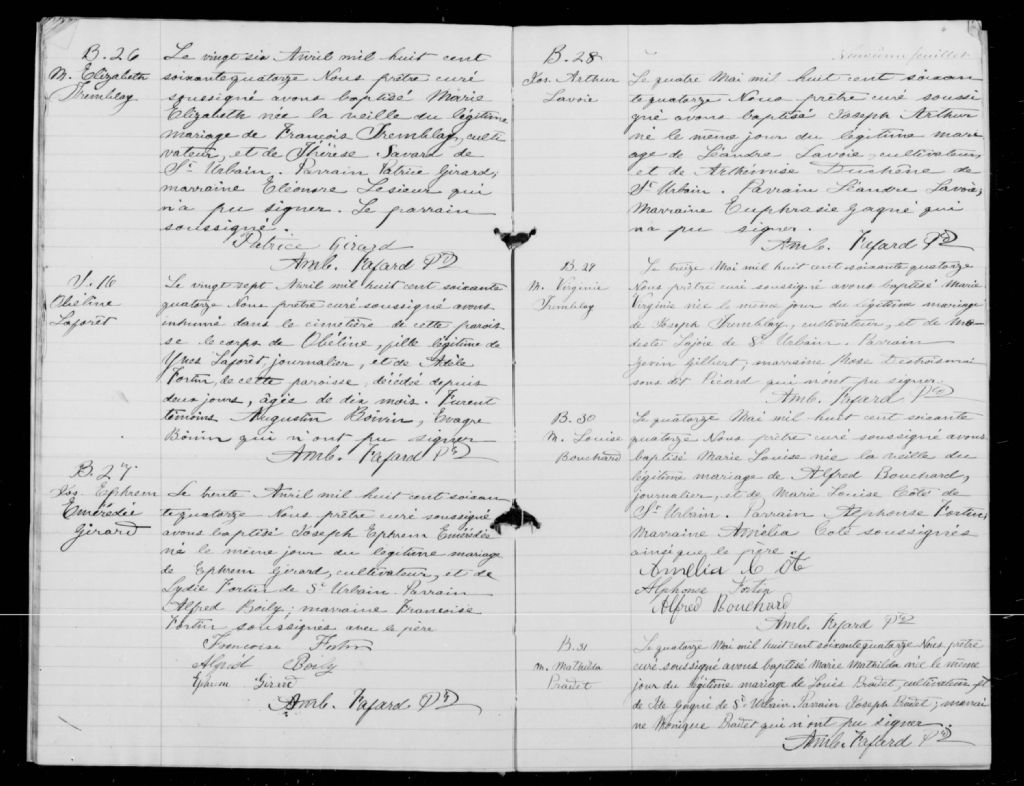 B. 26
M. Elizabeth
Tremblay
Le vingt six Avril mil huit cent
soixante quatorze Nous prêtre curé
soussigné avons baptisé Marie
Elizabeth née la veille du légitime
mariage de François Tremblay, culti
vateur, et de Thérèse Savard de
St Urbain. Parrain Patrice Girard;
marraine Eléonore Lesieur qui
n'a pu signer. Le parrain
soussigné.
Patrice Girard
Amb. Fafard Ptre
S. 16
Obéline
Laforêt
Le vingt sept Avril mil huit cent soixante
quatorze Nous prêtre curé soussigné avons
inhumé dans le cimetière de cette parois
se le corps de Obéline, fille légitime de
Yves Laforêt, journalier, et de Adèle
Fortin, de cette paroisse, décédée depuis
deux jours, âgée de dix mois. Furent
témoins Augustin Boivin, Evagre
Boivin qui n'ont pu signer
Amb. Fafard Ptre
B. 27
Jos. Ephrem
Emérédie
Girard
Le trente Avril mil huit cent soixan
te quatorze Nous prêtre curé soussigné
avons baptisé Joseph Ephrem Emérédie
né le même jour du légitime mariage
de Ephrem Girard, cultivateur, et de
Lydie Fortin de St Urbain. Parrain
Alfred Boily; marraine Francoise
Fortin soussignés avec le père
Francoise Fortin
Alfred Boily
Ephrem Girard
Amb. Fafard Ptre
feuillet
B. 28
Jos. Arthur
Lavoie
Le quatre Mai mil huit cent soixan
te quatorze Nous prêtre curé soussi
gné avons baptisé Joseph Arthur
né le même jour du légitime mari
age de Léandre Lavoie, cultivateur,
et de Arthémise Duchêne de
St Urbain. Parrain Léandre Lavoie;
Marraine Euphrasie Gagné qui
n'a pu signer.
Amb. Fafard Ptre
B. 29
M. Virginie
Tremblay
Le treize Mai mil huit cent soixante quatorze
Nous prêtre curé soussigné avons baptisé Marie
Virginie née le même jour du légitime mariage
de Joseph Tremblay, cultivateur, et de Mo
deste Lajoie de St Urbain. Parrain
Gilbert; marraine
sous dit Picard qui n'ont pu signer.
Amb. Fafard Ptre
B. 30
M. Louise
Bouchard
Le quatorze Mai mil huit cent soixante
quatorze Nous prêtre curé soussigné avons
baptisé Marie Louise née la veille du
légitime mariage de Alfred Bouchard,
journalier, et de Marie Louise Côté de
St Urbain. Parrain Alphonse Fortin;
Marraine Amélia Coté soussignés
ainsi que le père.
Amélia Coté
Alphonse Fortin
Alfred Bouchard
Amb. Fafard Ptre
B. 31
M. Mathilda
Bradet
Le quatorze Mai mil huit cent soixante quatorze Nous prêtre
curé soussigné avons baptisé Marie Mathilda née le même
jour du légitime mariage de Louis Bradet, cultivateur, et
de Gagné de St Urbain. Parrain Joseph Bradet; marrai
ne Monique Bradet qui n'ont pu signer.
Amb. Fafard Ptre